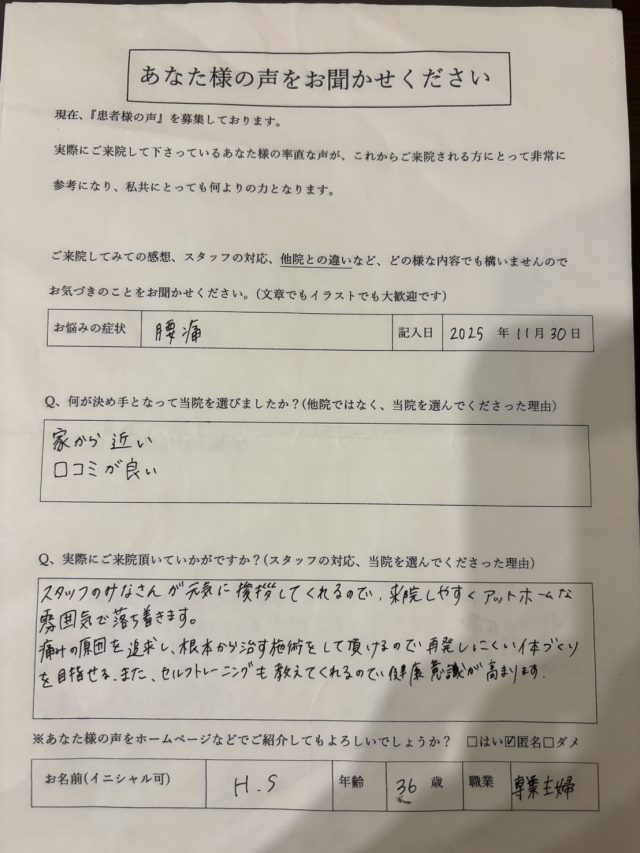 あなた様の声をお聞かせください
現在、『患者様の声』を募集しております。
実際にご来院して下さっているあなた様の率直な声が、これからご来院される方にとって非常に
参考になり、私共にとっても何よりの力となります。
ご来院してみての感想、スタッフの対応、他院との違いなど、どの様な内容でも構いませんので
お気づきのことをお聞かせください。(文章でもイラストでも大歓迎です)
お悩みの症状 腰痛 記入日 2025 年 11月 30日
Q、何が決め手となって当院を選びましたか？(他院ではなく、当院を選んでくださった理由)
家から近い
口コミが良い
Q、実際にご来院頂いていかがですか？(スタッフの対応、当院を選んでくださった理由)
スタッフのみなさんが元気に挨拶してくれるので、来院しやすくアットホームな
雰囲気で落ち着きます。
痛みの原因を追求し、根本から治す施術をして頂けるので再発しにくい体づくり
を目指せる。また、セルフトレーニングも教えてくれるので健康意識が高まります.
※あなた様の声をホームページなどでご紹介してもよろしいでしょうか？ □はい☑匿名□ダメ
お名前(イニシャル可) H.S 年齢 36 歳 職業 専業主婦